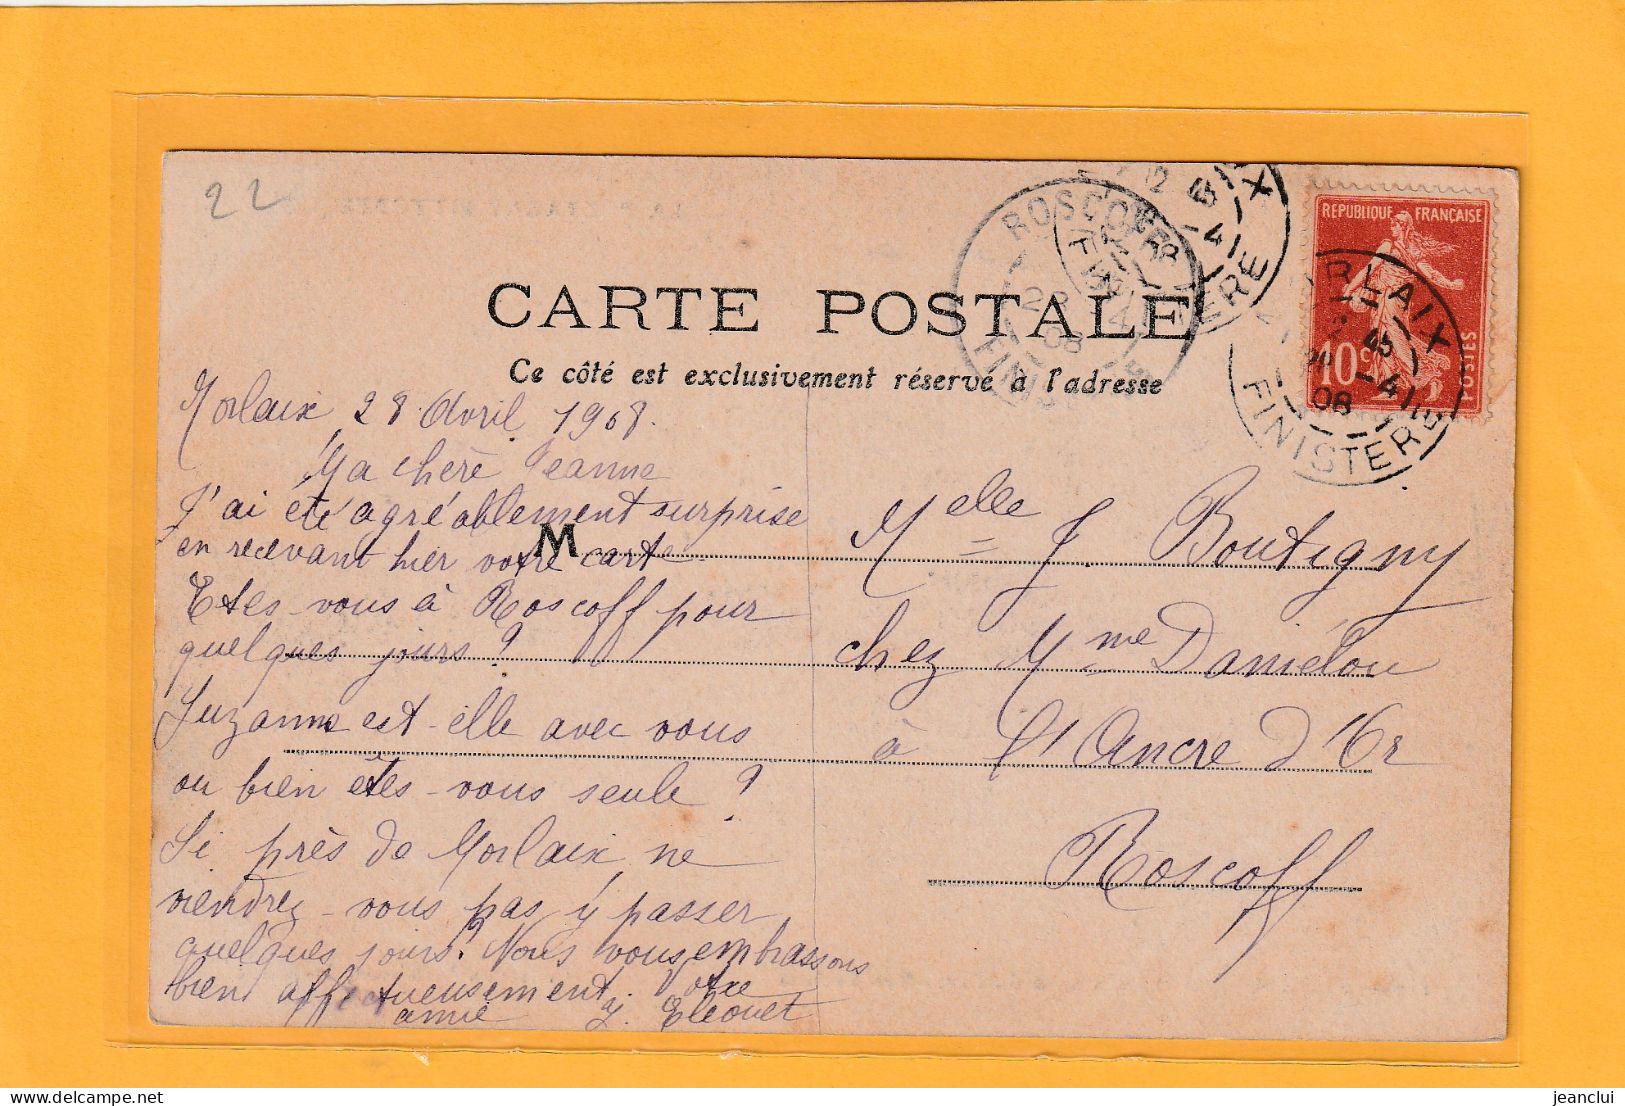 22
CARTE POSTALE
Ce côté est exclusivement réservé à l'adresse
RÉPUBLIQUE FRANÇAISE
10 c
POSTES
ROSCOFF
FINISTERE
08
FINISTERE
Morlaix 28 Avril 1908.
Ma chère Jeanne
J'ai été agréablement surprise
en recevant hier votre carte.
Etes-vous à Roscoff pour
quelques jours ?
Suzanne est-elle avec vous
ou bien êtes-vous seule ?
Si près de Morlaix, ne
viendrez-vous pas y passer
quelques jours ? Nous vous embrassons
bien affectueusement. Votre
amie
M
Melle J. Boutigny
chez Mme Daniélou
à l'Ancre d'Or
Roscoff
jeanclui